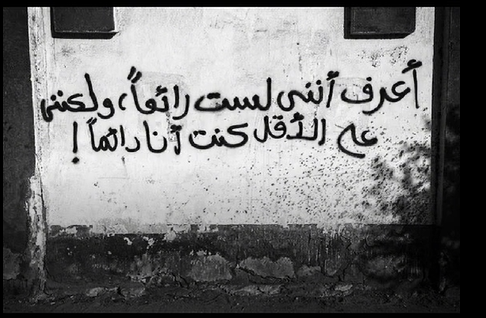 أعرف أنني لست رائعاً، ولكنني
على الأقل كنت أنا دائماً!